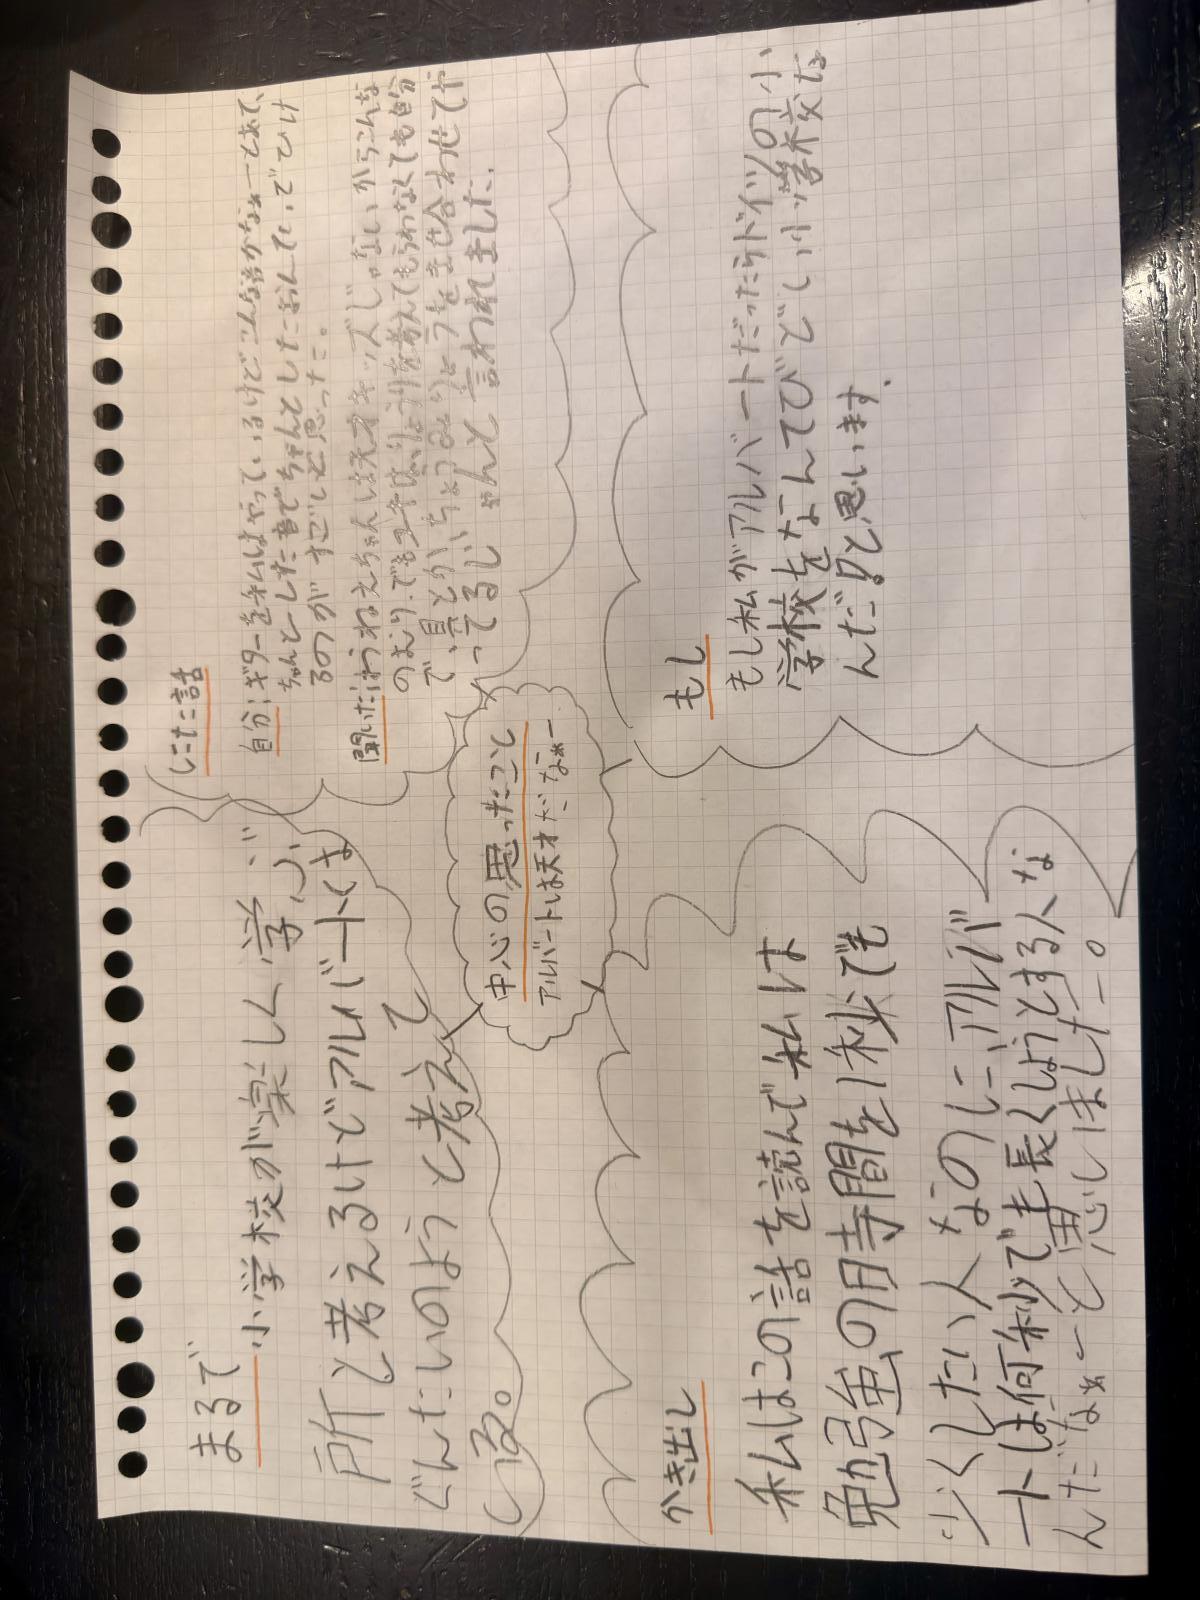 まるで
小学校が楽しく学ぶ
所と考えるけどアルバートくは
ぐんたいのようと考えて
いる。
にた話
自分:ギターを私はやっているけどこんな音かなぁーとあて、
ちゃんとした音でちゃんとしたおんていでひけ
るのがすごいと思った。
聞いた:おねえちゃんは天才キッズじゃないからこんな
のむり、でもユキはりょうりを考えてもらわなくても自分
で、量とかいちょうみりょうをませ合わせてや
ってるじゃんと言われました.
中心の思ったこと
アルバートは天才だなぁー
かき出し
私はこの話を読んで私は
勉強の時間を1秒でも
少くしたい人なのにアルバ
ートは何秒でも長くしようとする人な
んだなぁーと思いました。
もし
もし私がアルバートだったらドイツの小
学校をなんててびどしい小学校な
んだ!と思います.